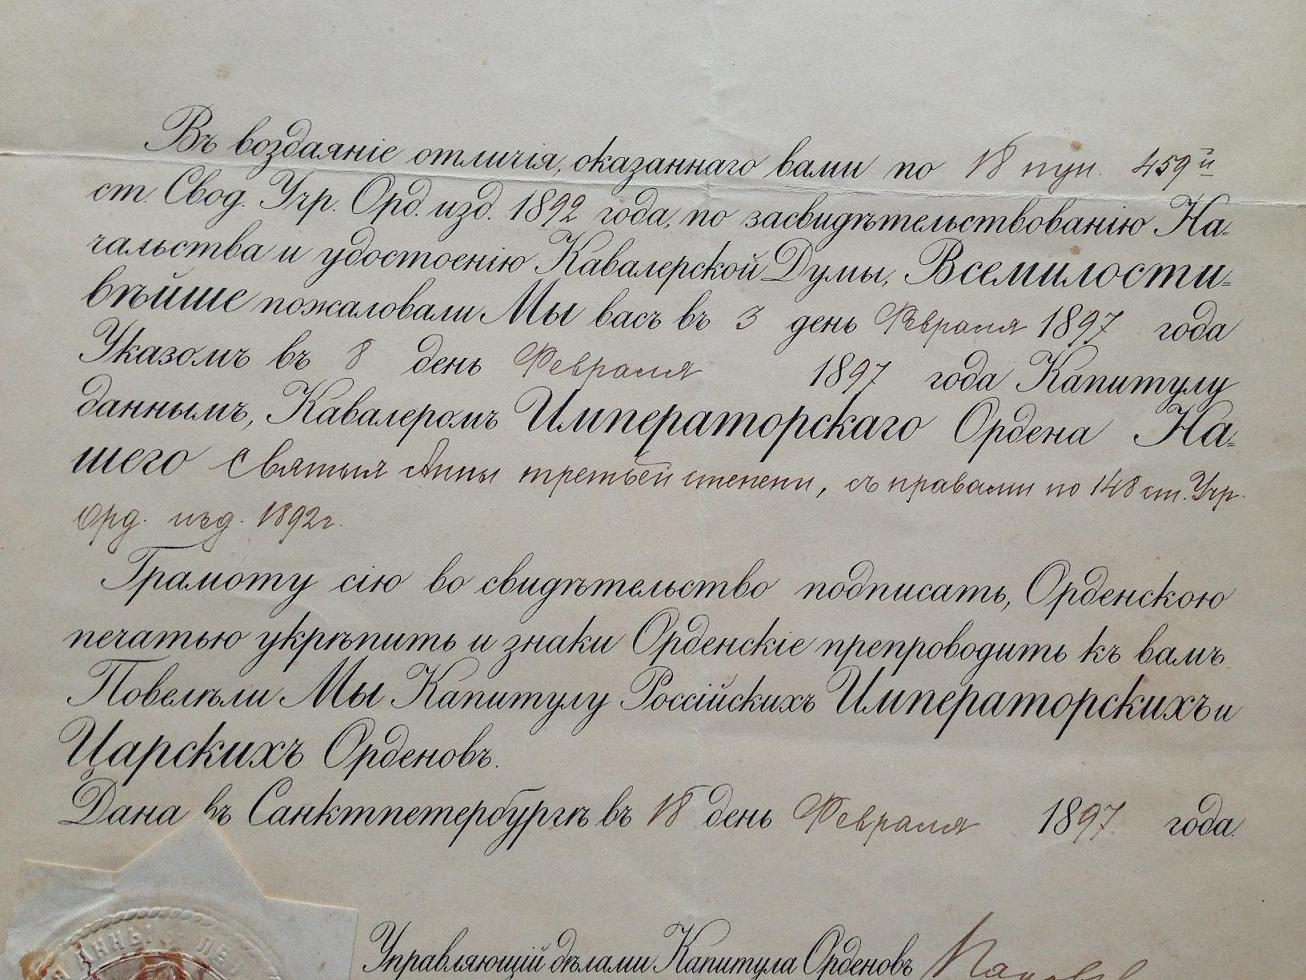 Въ воздаянiе отличiя, оказаннаго вами по 18 пун. 459й
ст. Свод. Учр. Орд. изд. 1892 года, по засвидѣтельствованiю На-
чальства и удостоенiю Кавалерской Думы, Всемилости-
вѣйше пожаловали Мы васъ въ 3 день Февраля 1897 года
Указомъ въ 8 день Февраля 1897 года Капитулу
даннымъ, Кавалеромъ Императорскаго Ордена На-
шего Святыя Анны третьей степени, съ правами по 148 ст. Учр.
Орд. изд. 1892 г.
Грамоту сiю во свидѣтельство подписать, Орденскою
печатью укрѣпить и знаки Орденскiе препроводить къ вамъ
Повелѣли Мы Капитулу Россiйскихъ Императорскихъ и
Царскихъ Орденовъ.
Дана въ Санктпетербургѣ въ 18 день Февраля 1897 года.
Управляющiй дѣлами Капитула Орденовъ